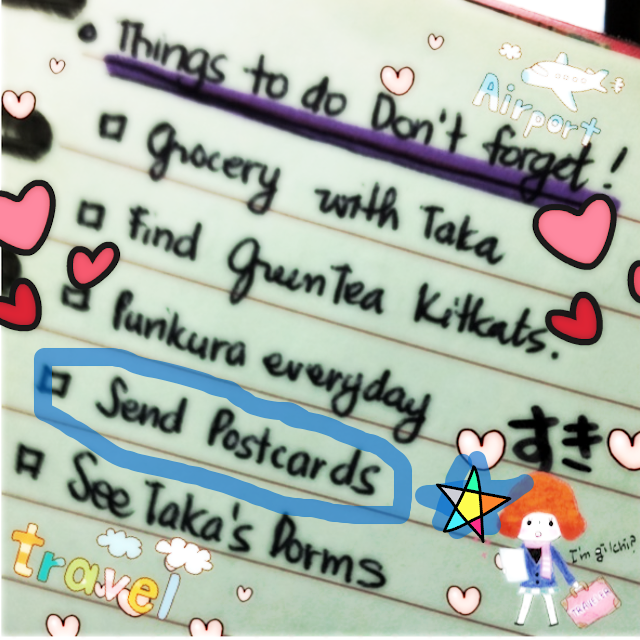 Things to do Don't forget!
Airport
Grocery with Taka
Find GreenTea Kitkats.
Purikura everyday
Send Postcards
すき
See Taka's Dorms
travel
I'm gilchi?